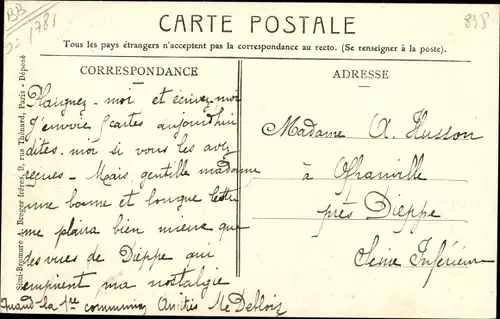 BB
1781
838
CARTE POSTALE
Tous les pays étrangers n'acceptent pas la correspondance au recto. (Se renseigner à la poste).
CORRESPONDANCE
ADRESSE
Simi-Bromure A. Breger frères, 9, rue Thénard, Paris - Déposé
Plaignez-moi et écrivez-moi
J'envoie cartes aujourd'hui
dites-moi si vous les avez
reçues - Mais gentille madame
une bonne et longue lettre
me plaira bien mieux que
des vues de Dieppe qui
empirent ma nostalgie
Quand la 1re communion Amitiés
Madame A. Husson
à Offranville
près Dieppe
Seine Inférieure